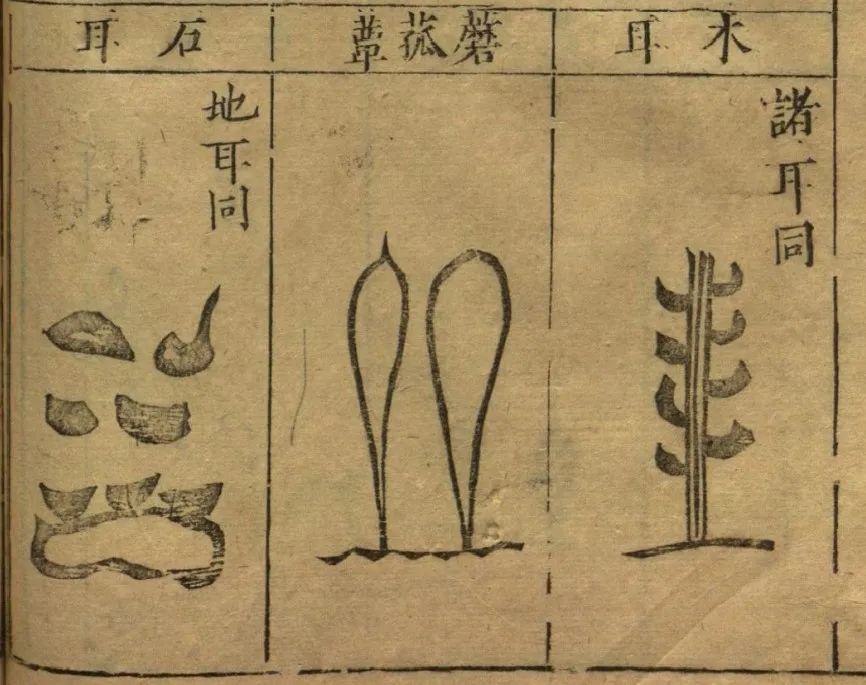 木耳
諸耳同
蘑菰蕈
石耳
地耳同